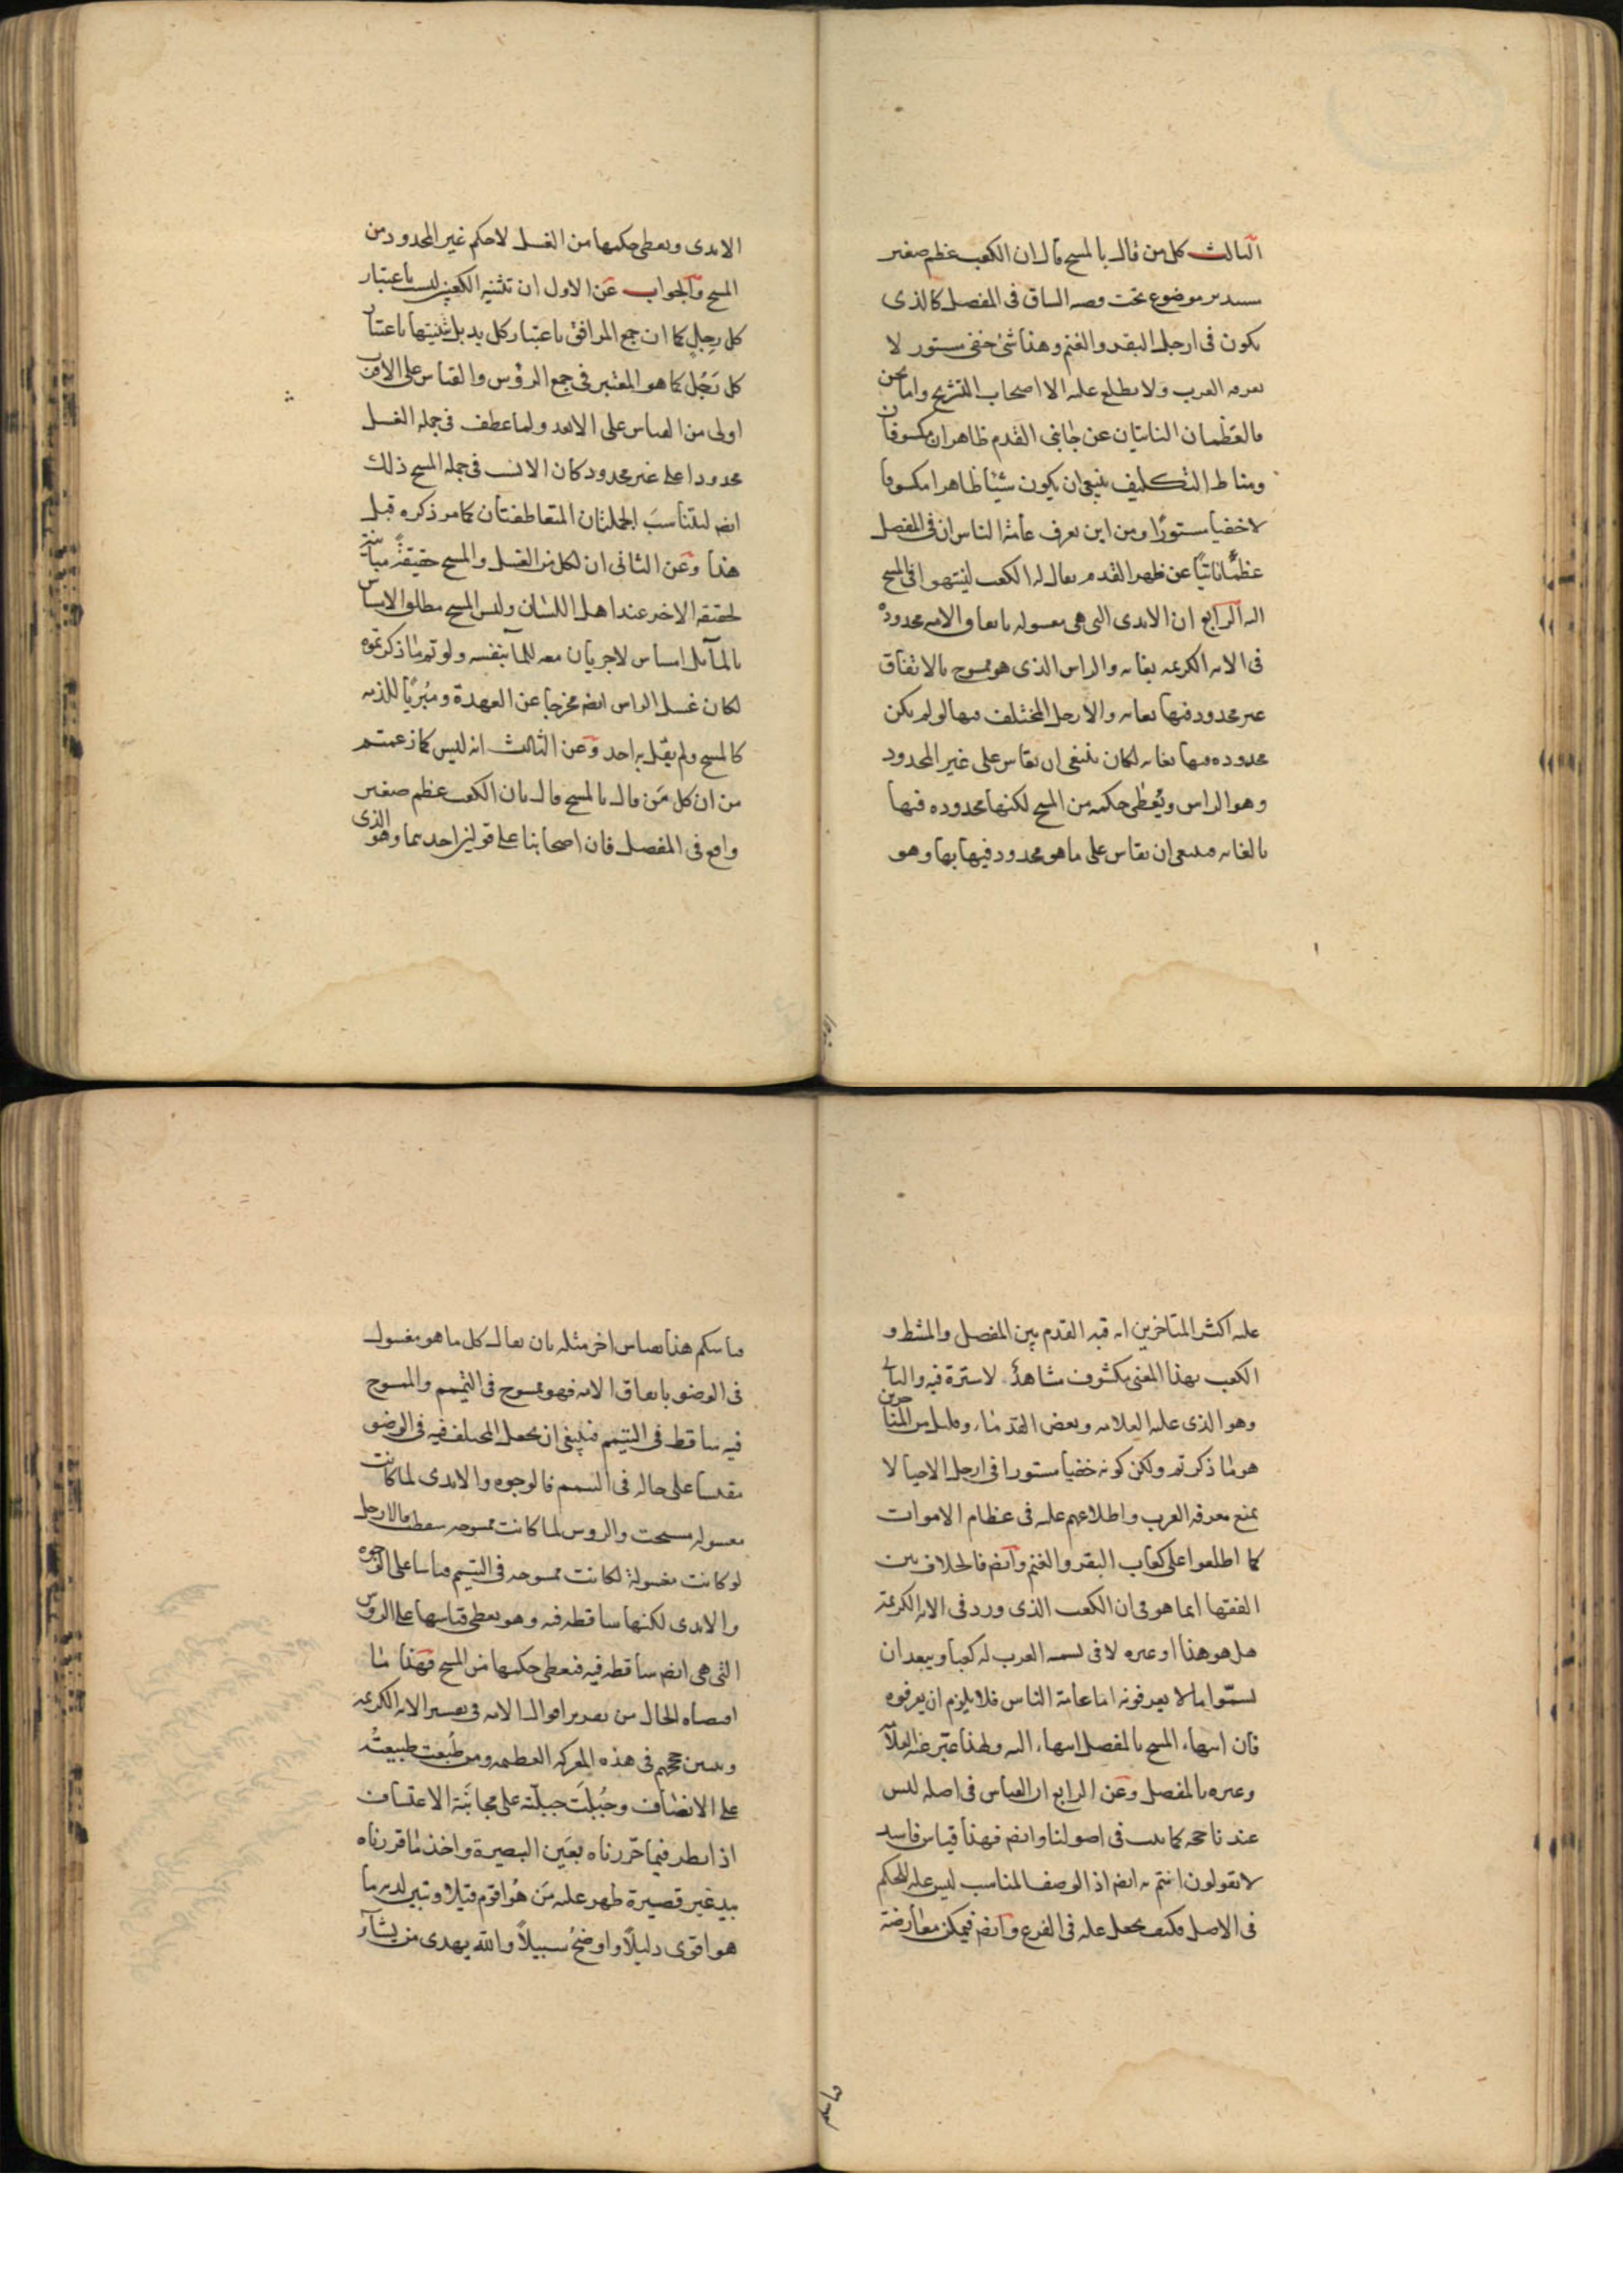 الثالث كل من قال بالمسح قال ان الكعب عظم صغير
مستدير موضوع تحت قصبه الساق فى المفصل كالذى
يكون فى ارجل البقر والغنم وهذا شئ خفى مستور لا
يعرفه العرب ولا يطلع عليه الا اصحاب التشريح واما نحن
فالعظمان الناتيان عن جانبى القدم ظاهران مكشوفان
ومناط التكليف ينبغى ان يكون شيئا ظاهرا مكشوفا
لا خفيا مستورًا ومن اين يعرف عامة الناس ان فى المفصل
عظمًا ناتيًا عن ظهر القدم يقال له الكعب لينتهوا فى المسح
اليه الرابع ان الايدى التى هى مغسوله باتفاق الامه محدودة
فى الايه الكريمه بغايه والراس الذى هو ممسوح بالاتفاق
غير محدود فيها بغايه والارجل المختلف فيها لو لم يكن
محدوده فيها بغايه لكان ينبغى ان تقاس على غير المحدود
وهو الراس ويُعطى حكمه من المسح لكنها محدوده فيها
بالغايه فينبغى ان تقاس على ما هو محدود فيها بها وهو
الايدى وتعطى حكمها من الغسل لا حكم غير المحدود من
المسح والجواب عَن الاول ان تثنيه الكعبين ليست باعتبار
كل رِجلٍ كما ان جمع المرافق باعتبار كل يد بل تثنيتها باعتبار
كل رَجُل كما هو المعتبر فى جمع الرؤس والقياس على الاقرب
اولى من القياس على الابعد ولما عطف فى جمله الغسل
محدودا على غير محدود كان الانسب فى جمله المسح ذلك
ايضا ليتناسبَ الجملتان المتعاطفتان كما مر ذكره قبل
هذا وعَن الثانى ان لكل من الغسل والمسح حقيقةً مباينة
لحقيقه الاخر عند اهل اللسان وليس المسح مطلق الامساس
بالماء بل امساس لا جريان معه للماء بنفسه ولو تم ما ذكرتموه
لكان غسل الراس ايضا مخرجا عن العهدة ومبريًا للذمه
كالمسح ولم يقل به احد وعَن الثالث انه ليس كما زعمتم
من ان كل مَن قال بالمسح قال بان الكعب عظم صغير
واقع فى المفصل فان اصحابنا على قولين احدهما وهو الذى
عليه اكثر المتاخرين انه قبه القدم بين المفصل والمشط و
الكعب بهذا المعنى مكشوف مشاهدٌ لا سترة فيه والثانى
وهو الذى عليه العلامه وبعض القدماء وقليل من المتاخرين
هو ما ذكرتم ولكن كونه خفيا مستورا فى ارجل الاحيا لا
يمنع معرفه العرب واطلاعهم عليه فى عظام الاموات
كما اطلعوا على كعاب البقر والغنم وايضا فالخلاف بين
الفقها انما هو فى ان الكعب الذى ورد فى الايه الكريمة
هل هو هذا او غيره لا فى تسميه العرب له كعبا ويبعد ان
يسمّوا ما لا يعرفونه اما عامة الناس فلا يلزم ان يعرفوه
فان انتهاء المسح بالمفصل انتهاء اليه ولهذا عبّر عنه العلامة
وغيره بالمفصل وعَن الرابع ان القياس فى اصله ليس
عندنا حجه كما ثبت فى اصولنا وايضا فهذا قياس فاسد
لا تقولون انتم به ايضا اذ الوصف المناسب ليس عله للحكم
فى الاصل فكيف يجعل عله فى الفرع وايضا فيمكن معارضة
قياسكم هذا بقياس اخر مثله بان يقال كل ما هو مغسول
فى الوضو باتفاق الامه فهو ممسوح فى التيمم والممسوح
فيه ساقط فى التيمم فينبغى ان يجعل المختلف فيه فى الوضو
مقيسا على حاله فى التيمم فالوجوه والايدى لما كانت
مغسوله مسحت والروس لما كانت ممسوحه سقطت فالارجل
لو كانت مغسولة لكانت ممسوحه فى التيمم قياسا على الوجوه
والايدى لكنها ساقطه فيه وهو يعطى قياسها على الروس
التى هى ايضا ساقطه فيه فتعطى حكمها من المسح فهذا ما
اقتضاه الحال من تقرير اقوال الامه فى تفسير الايه الكريمه
وتبيين حججهم فى هذه المعركه العظيمه ومن طُبعت طبيعتُه
على الانصاف وجُبلَت جبلّته على مجانبَة الاعتساف
اذا نظر فيما حرّرناه بعَين البصيرة واخذ ما قررناه
بيد غير قصيرة ظهر عليه مَن هُو اقوم قيلا وتبين لديه ما
هو اقوى دليلًا واوضحُ سبيلاً والله يهدى من يشآء